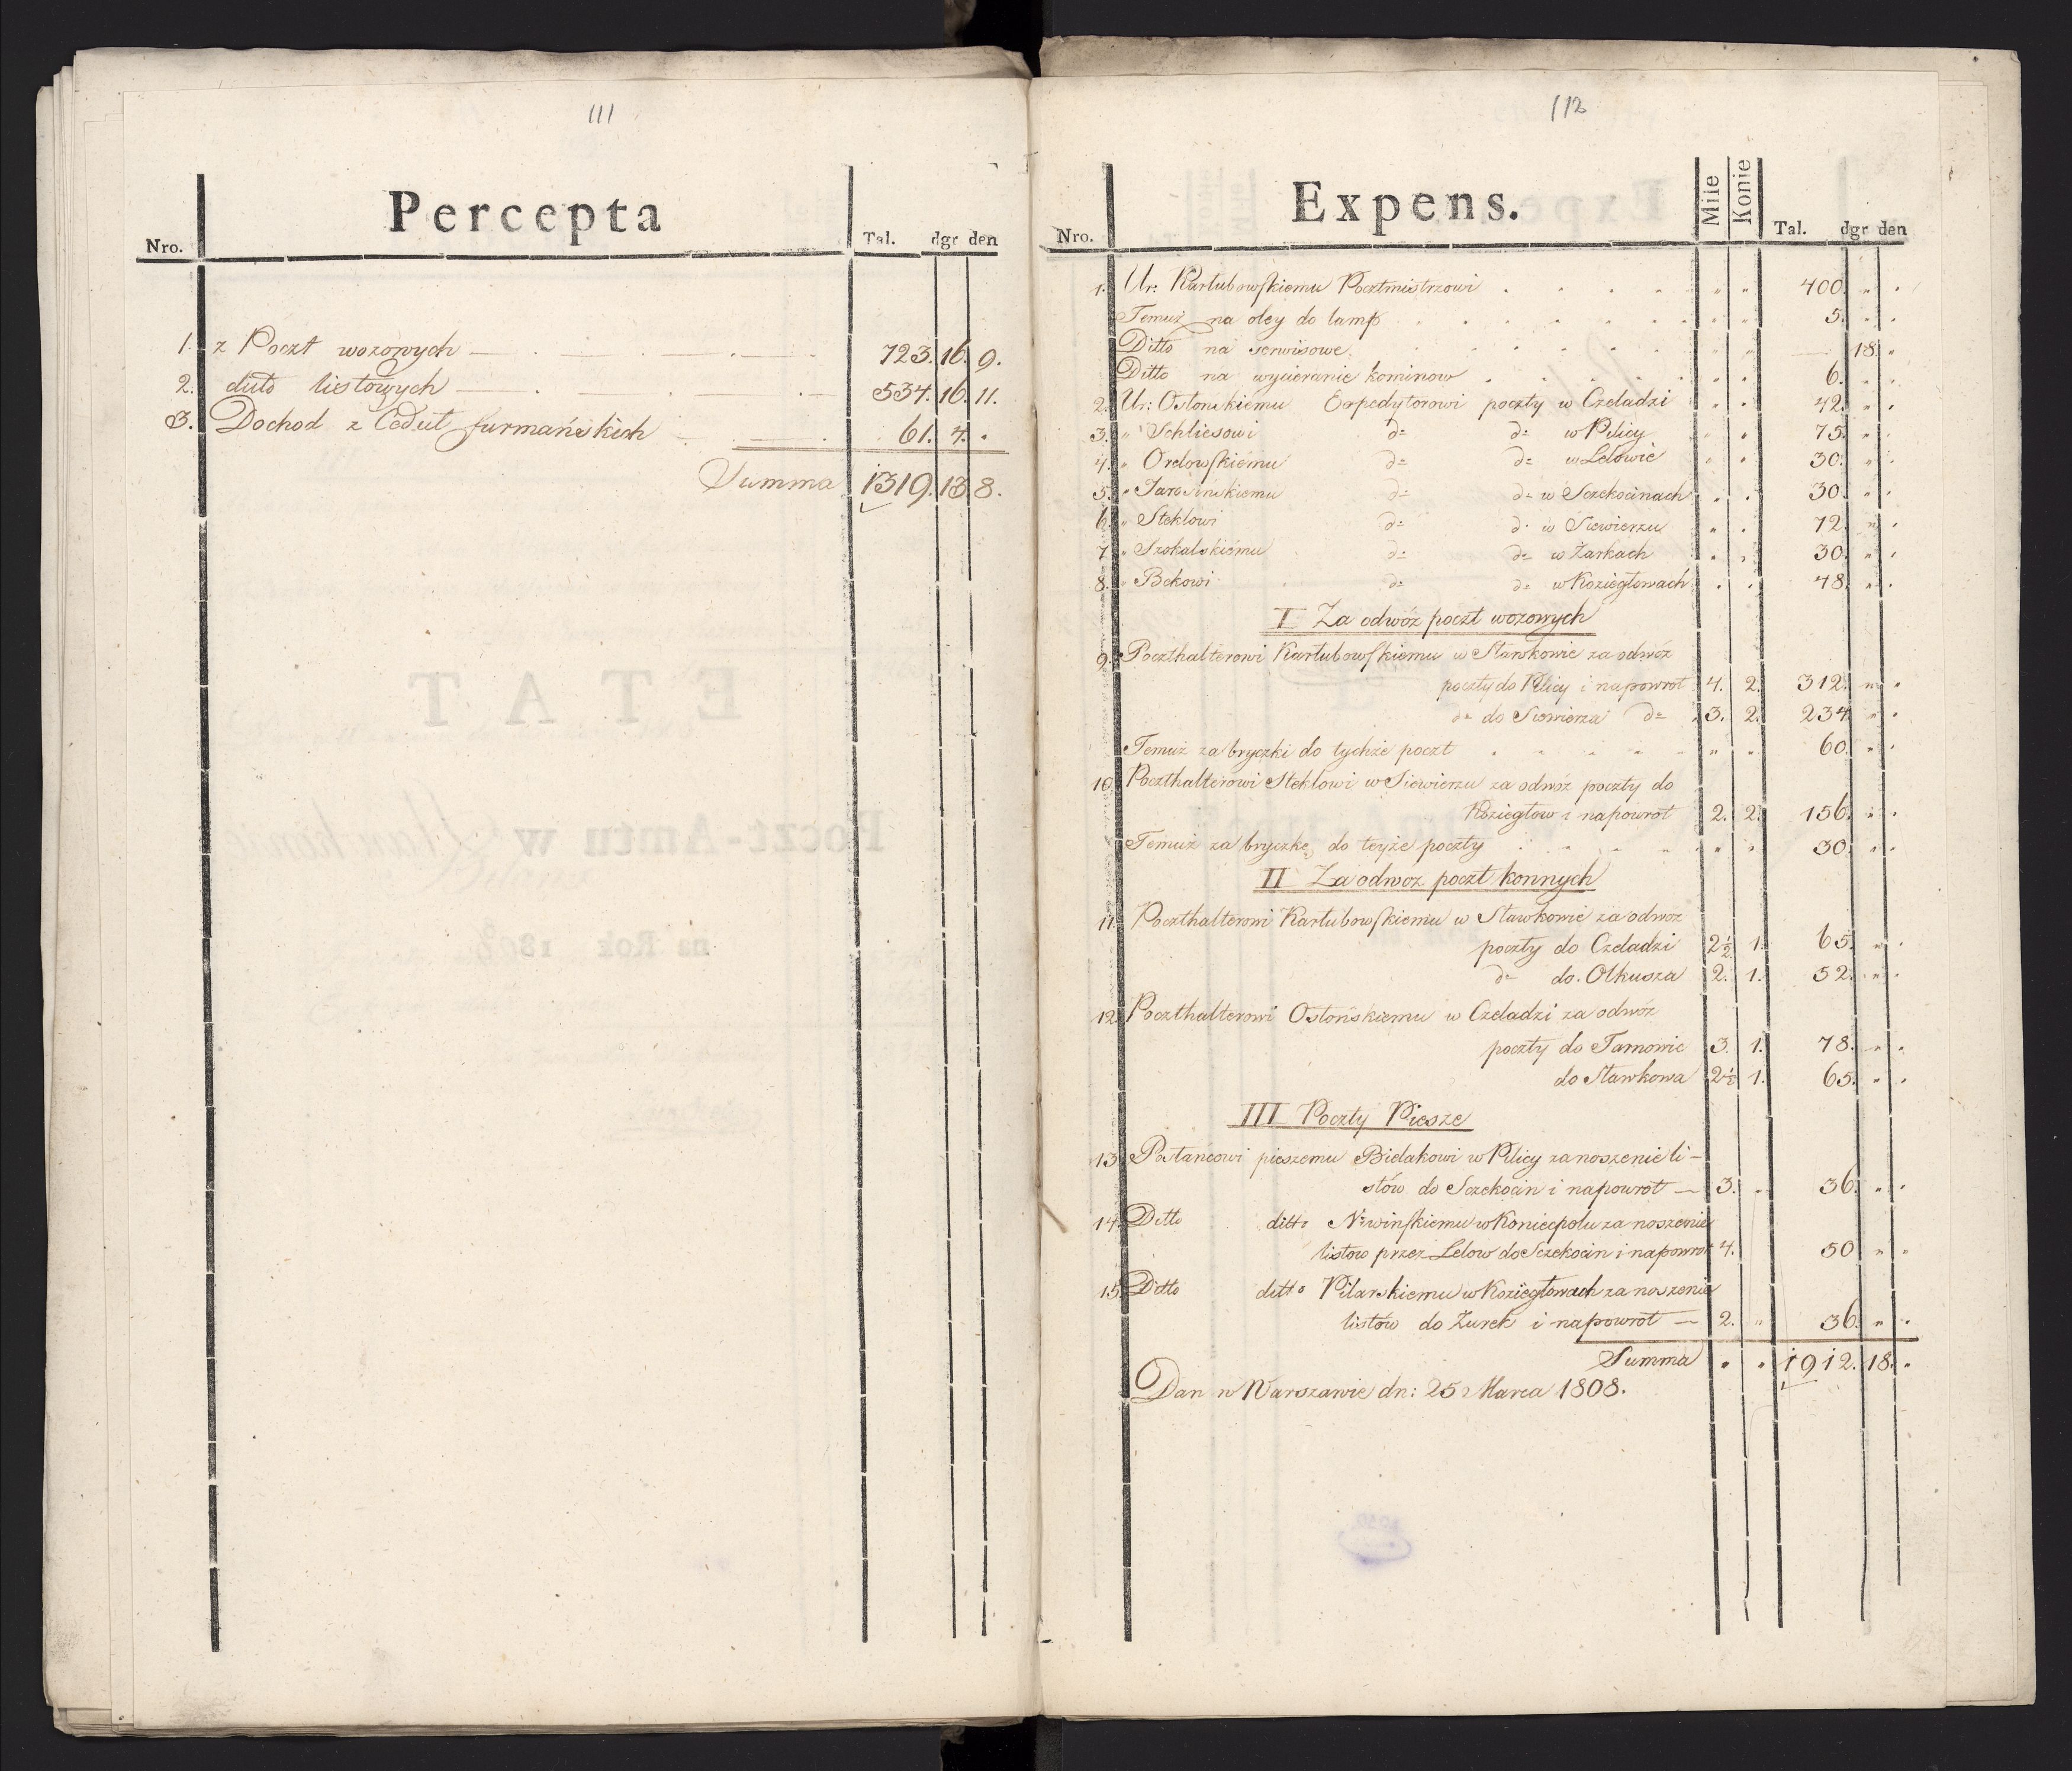 111
Percepta
Nro. Tal. dgr den
1. z Poczt wozowych 723. 16. 9.
2. ditto listowych 534. 16. 11.
3. Dochod z Cedut furmańskich 61. 4.
Summa 1319. 13. 8.
112
Expens.
Nro. Mile Konie Tal. dgr den
1. Ur: Kartubowskiemu Pocztmistrzowi 400.
Temuż na oley do lamp 5.
Ditto na serwisowe 18.
Ditto na wycieranie kominow 6.
2. Ur: Ostonskiemu Expedytorowi poczty w Czeladzi 42.
3. " Schliesowi do do w Pilicy 75.
4. " Orelowskiemu do do w Lelowie 30.
5. " Jarosinskiemu do do w Sczekocinach 30.
6. " Steklowi do do w Siewierzu 72.
7. " Szokalskiemu do do w Żarkach 30.
8. " Bekowi do do w Koziegłowach 48.
I Za odwóz poczt wozowych
9. Poczthalterowi Kartubowskiemu w Sławkowie za odwóz
poczty do Pilicy i napowrot 4. 2. 312.
do do Siewierza do 3. 2. 234.
Temuż za bryczki do tychże poczt 60.
10. Poczthalterowi Steklowi w Siewierzu za odwóz poczty do
Koziegłow i napowrot 2. 2. 156.
Temuż za bryczkę do teyże poczty 30.
II Za odwoz poczt konnych
11. Poczthalterowi Kartubowskiemu w Sławkowie za odwoz
poczty do Czeladzi 2½ 1. 65.
do do Olkusza 2. 1. 52.
12. Poczthalterowi Ostońskiemu w Czeladzi za odwóz
poczty do Tarnowic 3. 1. 78.
do Sławkowa 2½ 1. 65.
III Poczty Piesze
13. Posłańcowi pieszemu Bielakowi w Pilicy za noszenie li-
stów do Sczekocin i napowrot 3. 36.
14. Ditto ditto Niwinskiemu w Koniecpolu za noszenie
listow przez Lelow do Sczekocin i napowrot 4. 50
15. Ditto ditto Pilarskiemu w Koziegłowach za noszenie
listów do Żurek i napowrót 2. 36.
Summa 1912. 18.
Dan w Warszawie dn: 25 Marca 1808.